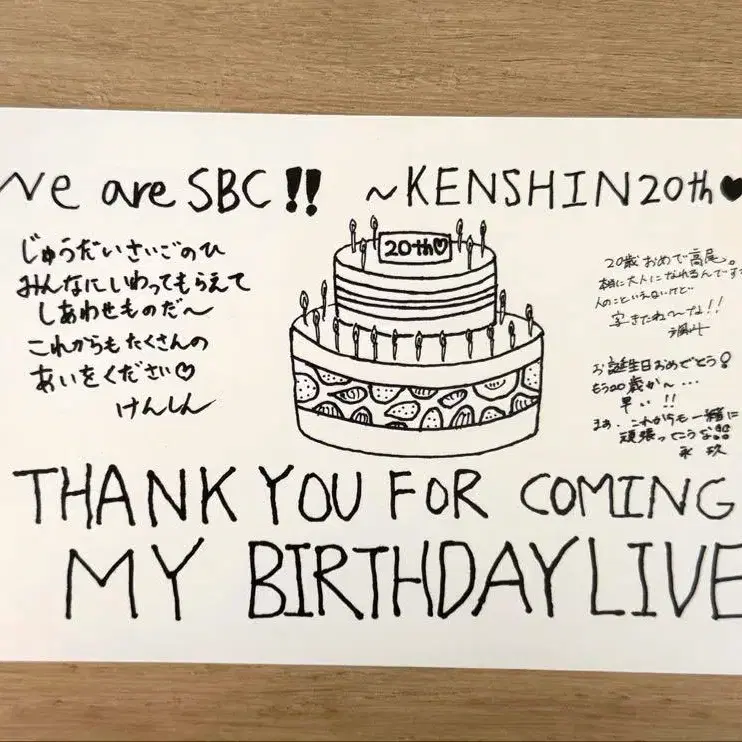 We are SBC!! ~KENSHIN20th♥
じゅうだいさいごのひ
みんなにいわってもらえて
しあわせものだ〜
これからもたくさんの
あいをください♡
けんしん
20th♡
20歳おめで高尾。
本当に大人になれるんですか
人のこといえないけど…
生きたね〜な!!
颯斗
お誕生日おめでとう!
もう20歳か〜...
早い!!
まぁ、これからも一緒に
頑張ってこうな!!
永玖
THANK YOU FOR COMING
MY BIRTHDAY LIVE